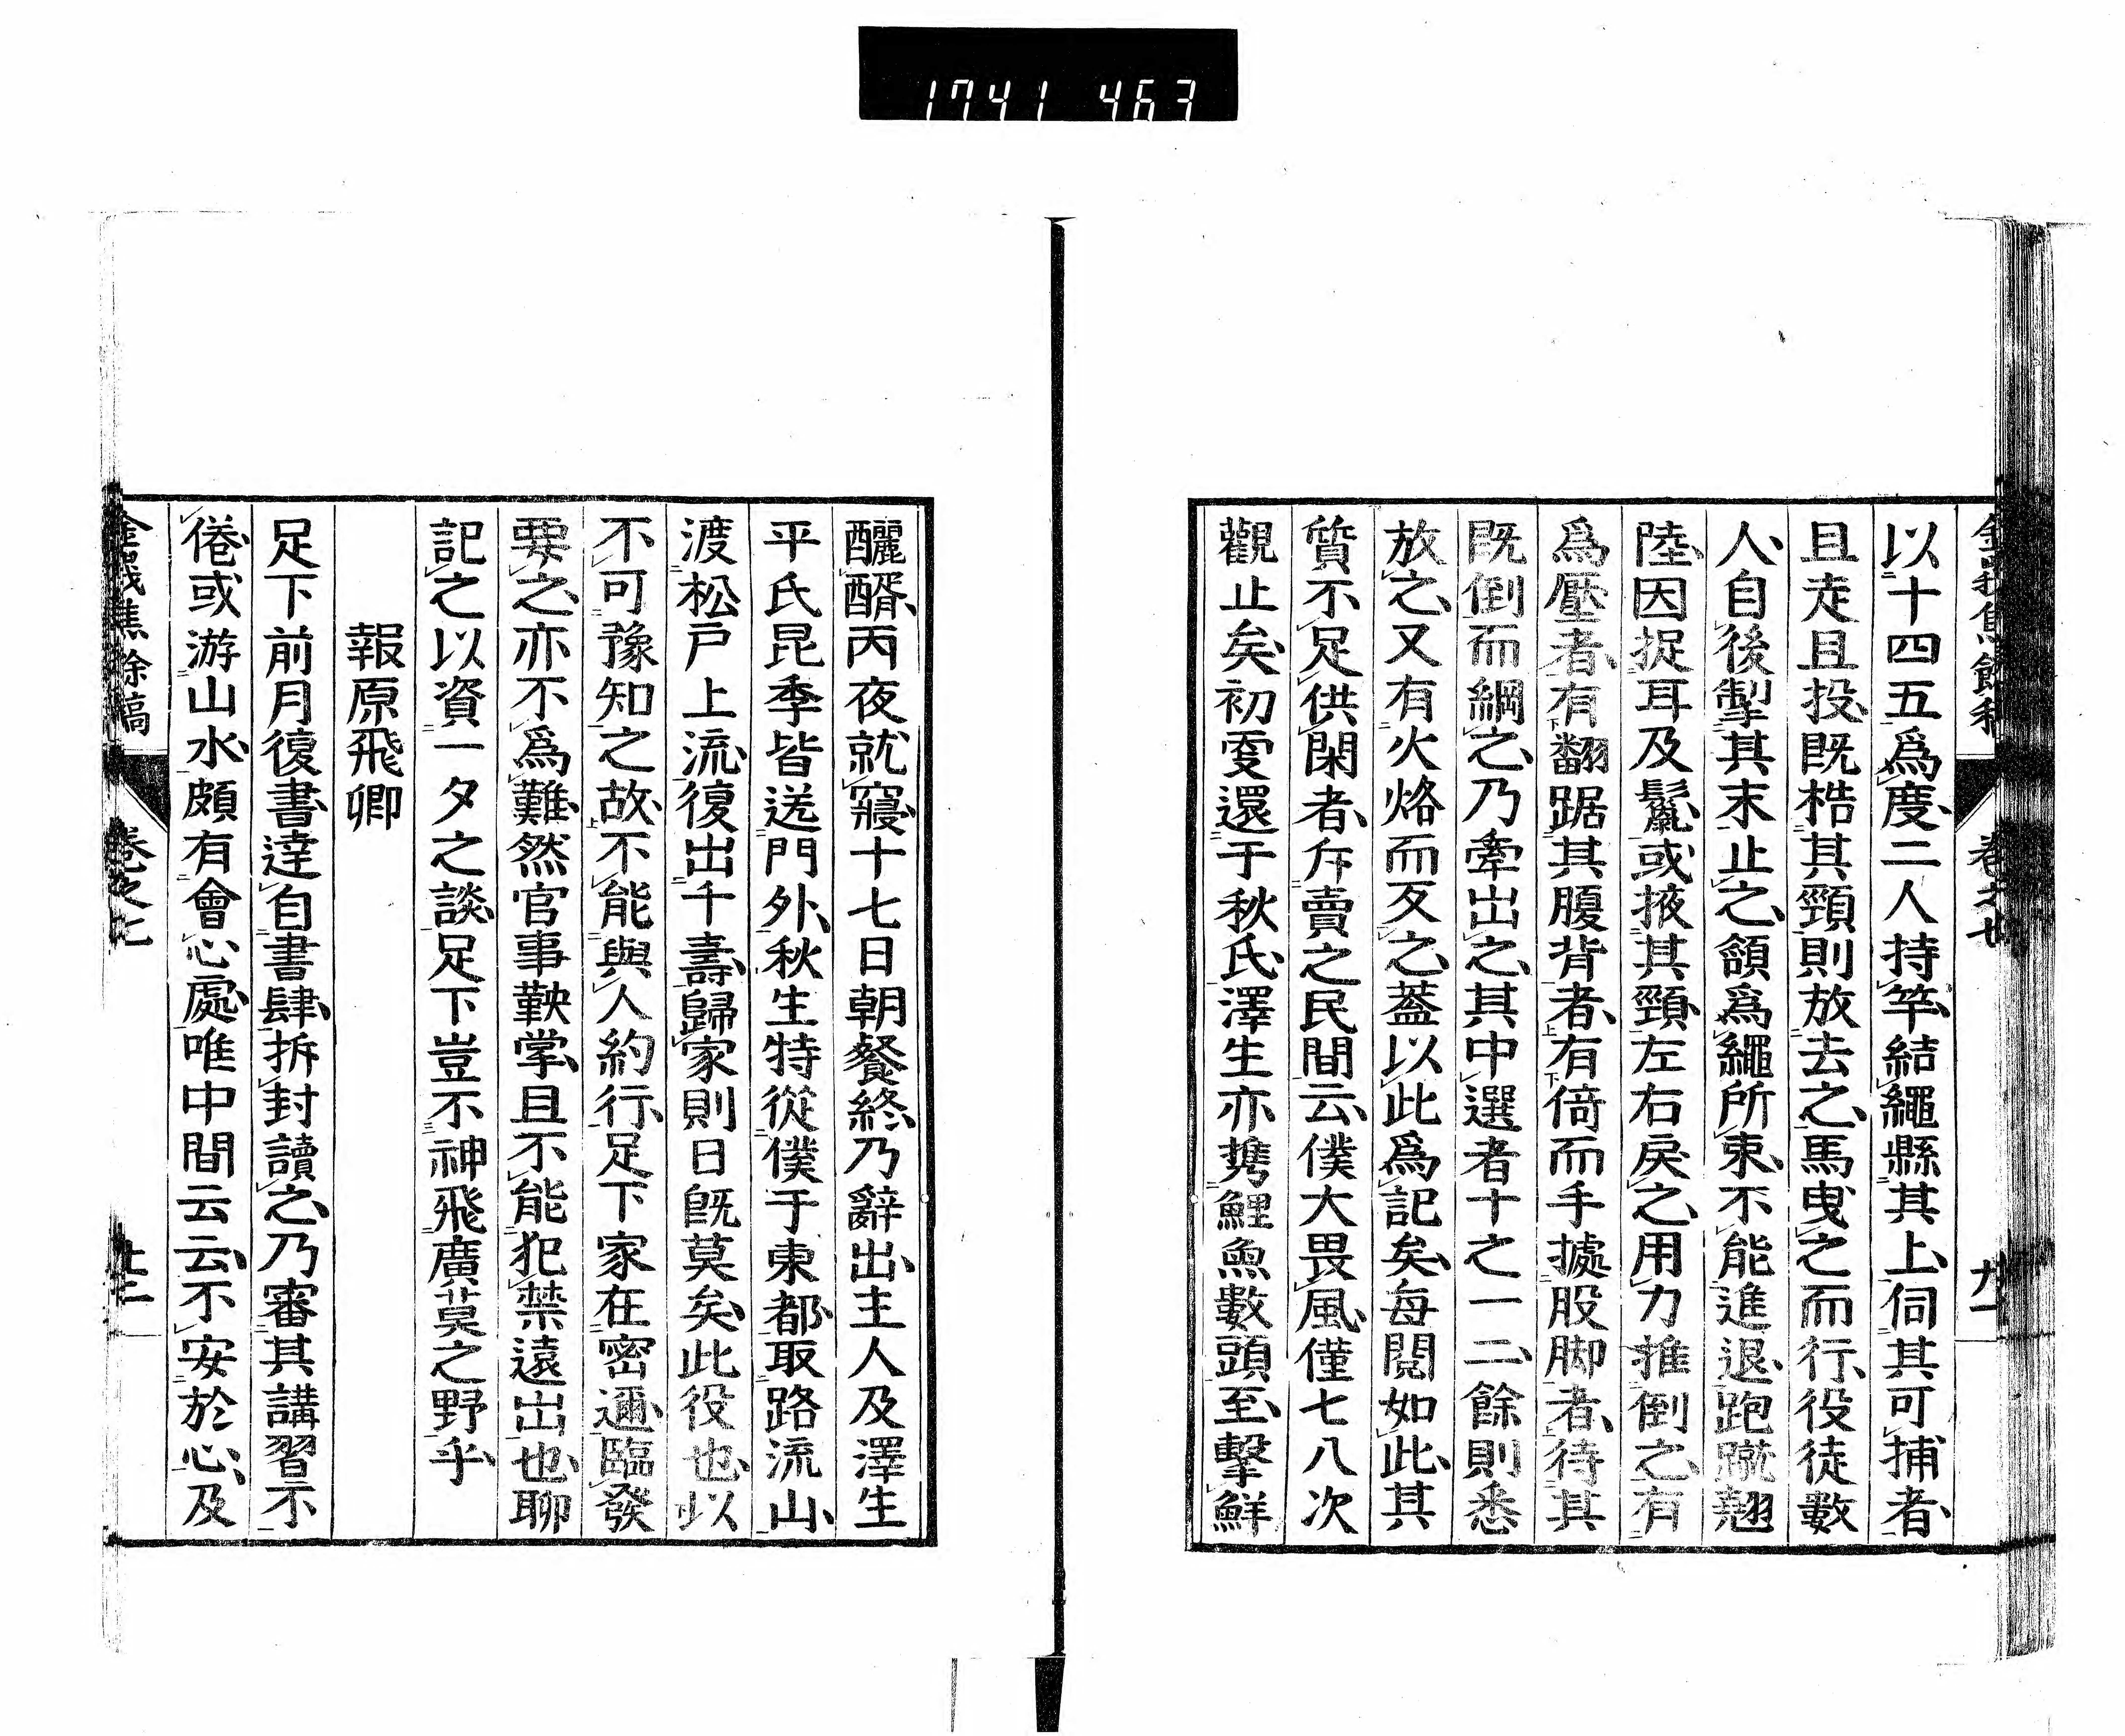 1741 463
以十四五爲度二人持竿結繩縣其上伺其可捕者
且走且投既梏其頸則放去之馬曳之而行役徒數
人自後掣其末止之頷爲繩所束不能進退跑蹴翹
陸因捉耳及鬣或掖其頸左右戾之用力推倒之有
爲壓者有翻踞其腹背者有倚而手據股脚者待其
既倒而綱之乃牽出之其中選者十之一二餘則悉
放之又有火烙而叐之蓋以此爲記矣每閱如此其
質不足供閑者斥賣之民間云僕大畏風僅七八次
觀止矣初夜還于秋氏澤生亦携鯉魚數頭至擊鮮
釃醑丙夜就寢十七日朝餐終乃辭出主人及澤生
平氏昆季皆送門外秋生特從僕于東都取路流山
渡松戶上流復出千壽歸家則日既莫矣此役也以
不可豫知之故不能與人約行足下家在密邇臨發
要之亦不爲難然官事鞅掌且不能犯禁遠出也聊
記之以資一夕之談足下豈不神飛廣莫之野乎
報原飛卿
足下前月復書達自書肆拆封讀之乃審其講習不
倦或游山水頗有會心處唯中間云云不安於心及
金峨焦餘稿
卷之七